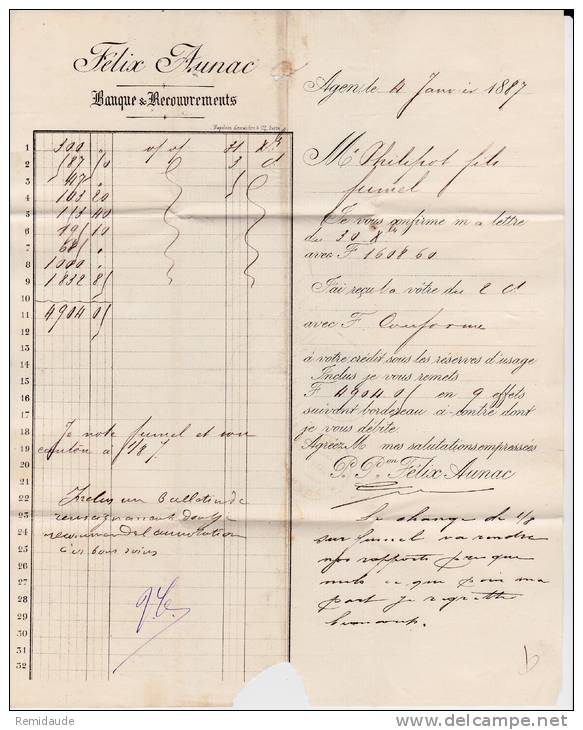 Félix Aunac
Banque & Recouvrements
Agen, le 4 Janvier 1887
Mr Philipot fils
fumel
Je vous confirme ma lettre
du 30 Xbre
avec F 1608 60
J'ai reçu la vôtre du 2 ct
avec F. Conforme
à votre crédit sous les réserves d'usage
Inclus je vous remets
F 4904 05 en 9 effets
suivant bordereau ci-contre dont
je vous débite.
Agréez M mes salutations empressées
P. Pon Félix Aunac
1 300 "
2 10
3 47 "
4 163 20
5 113 40
6 10
7 "
8 1000 "
9 1832 85
10
11 4904 05
12
13
14
15
16
17
18 Je note fumel et son
19 canton à 1/8
20
21
22 Inclus un Bulletin de
23 renseignement dont je
24
25
26
27
28
29
30
31
32
Le change de 1/8
sur fumel va rendre
nos rapports presque
nuls ce que pour ma
part je regrette
beaucoup.
Remidaude
©delcampe.net